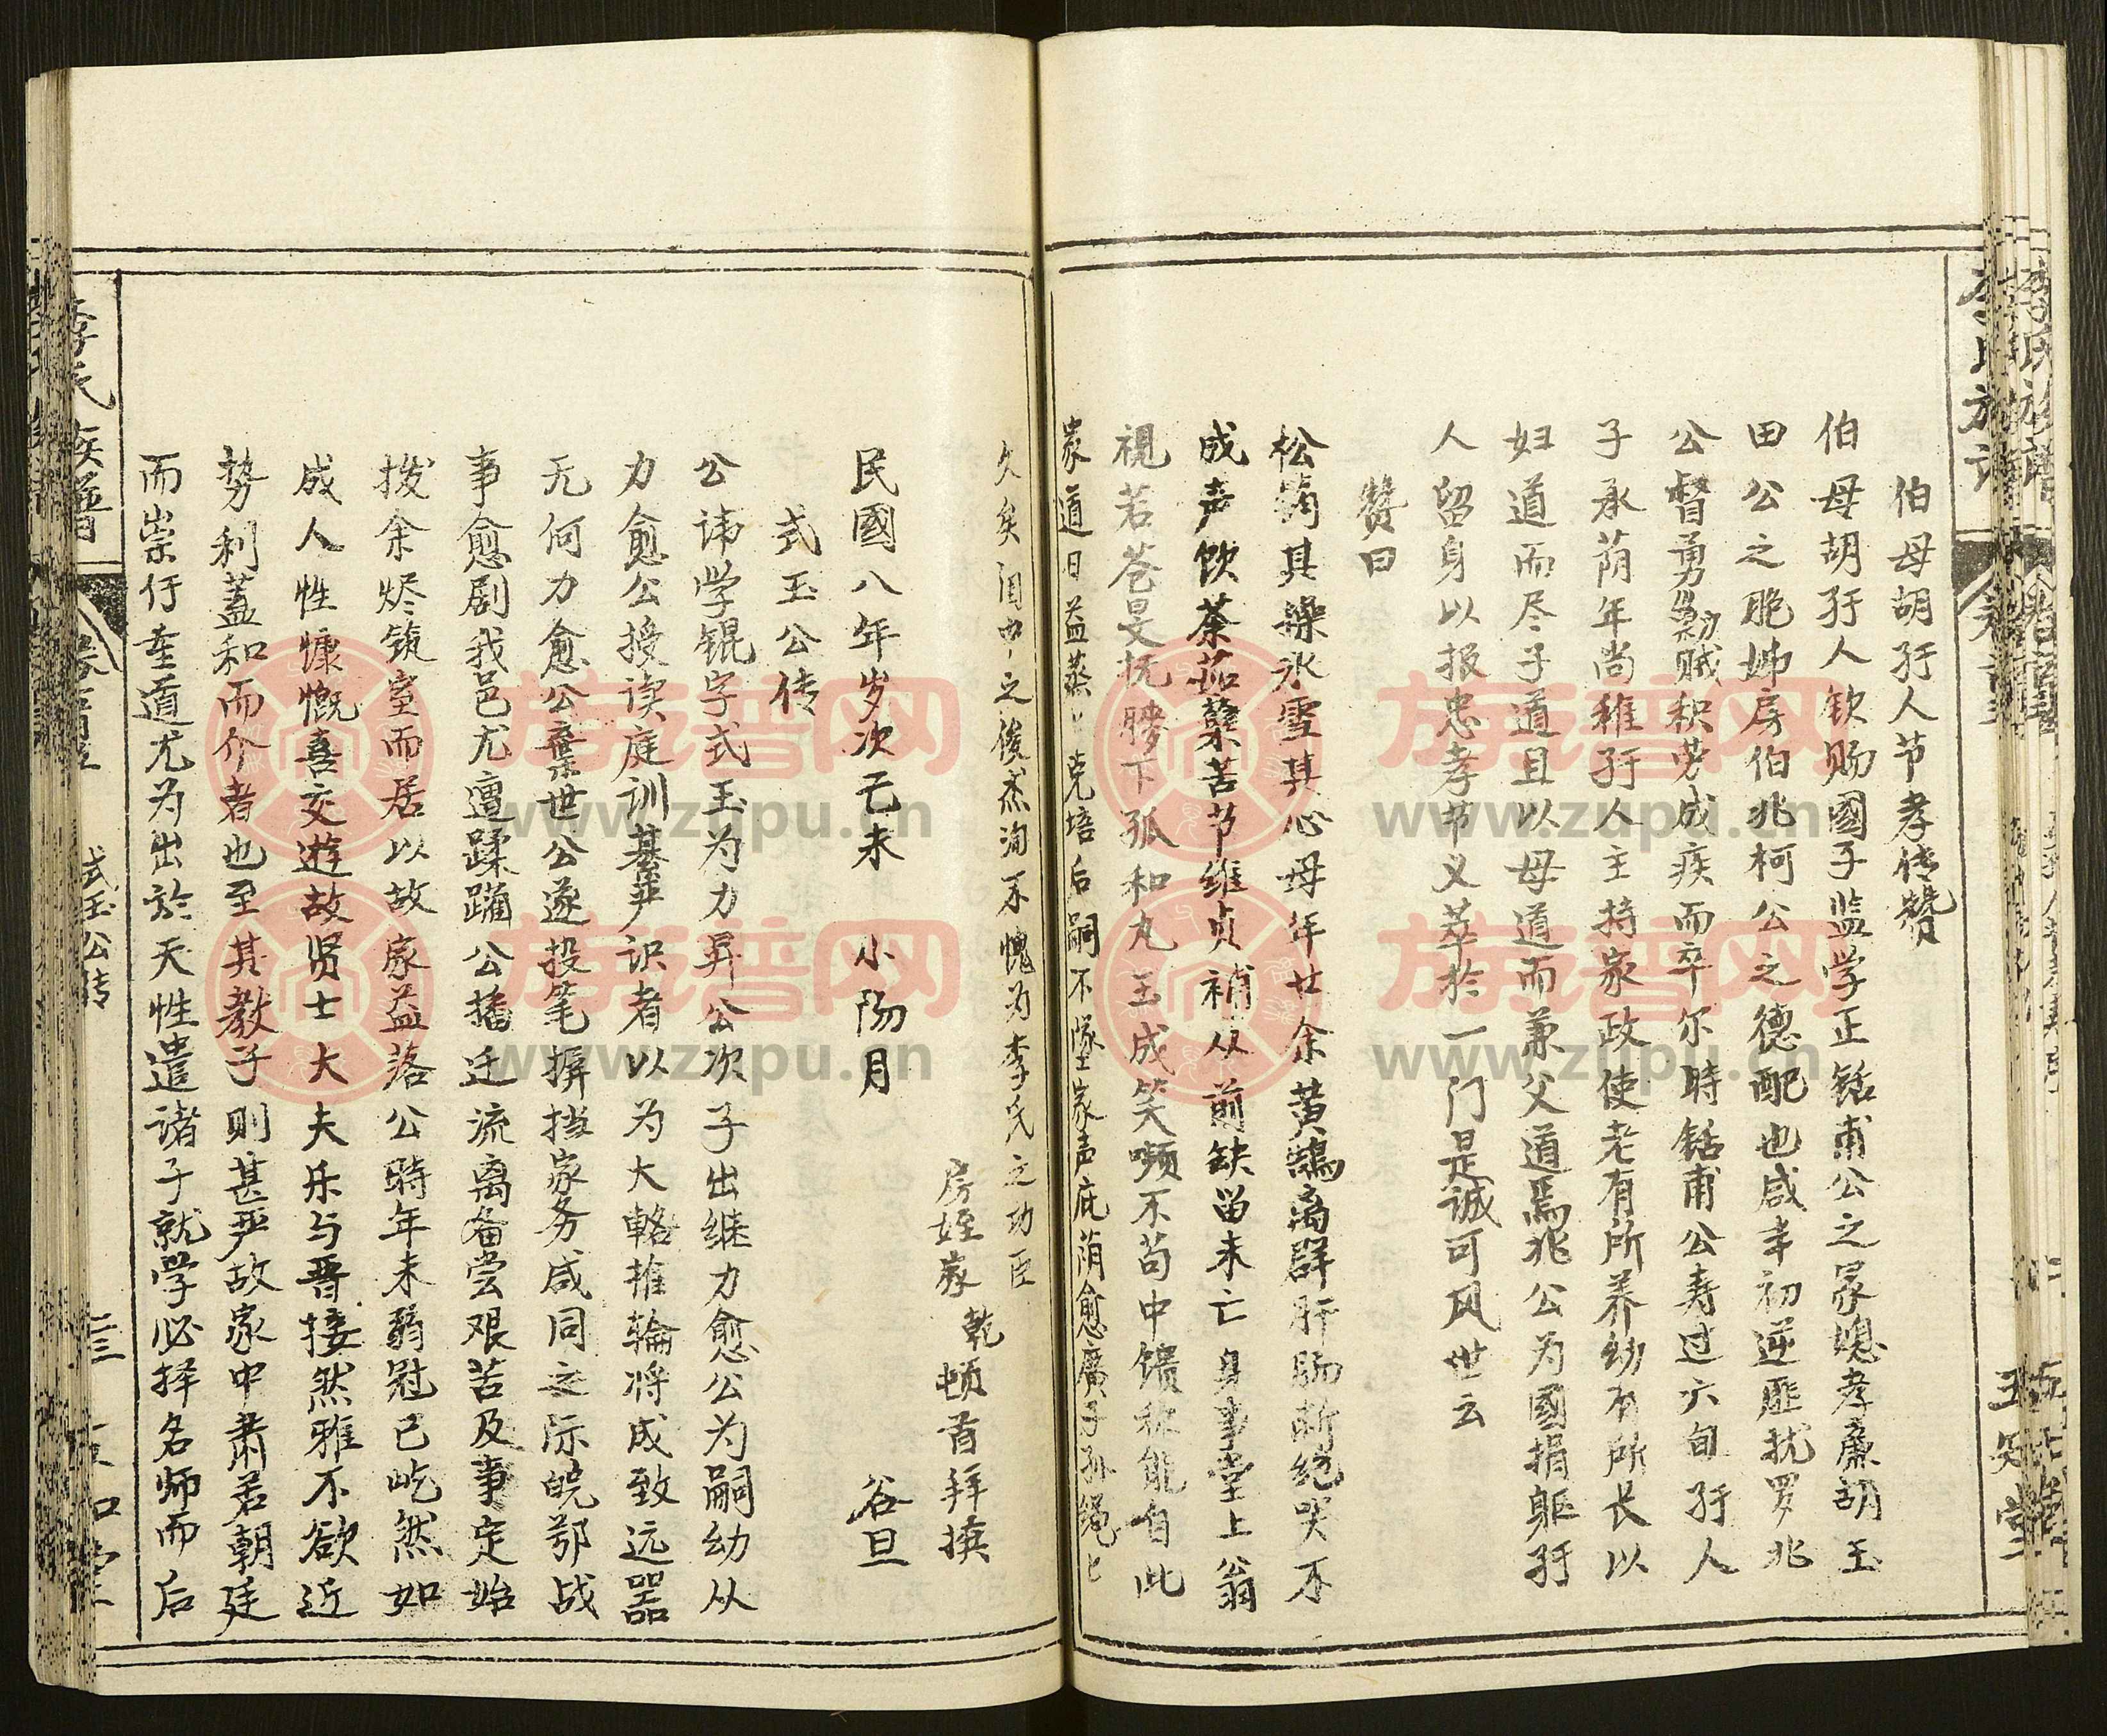 伯母胡孺人节孝传赞
伯母胡孺人钦赐國子监学正铦甫公之冢媳孝廉胡玉
田公之胞姊房伯兆柯公之德配也咸丰初逆匪扰罗兆
公督勇剿贼积劳成疾而卒尔時铦甫公寿过六旬孺人
子承荫年尚稚孺人主持家政使老有所养幼有所长以
妇道而尽子道且以母道而兼父道焉兆公为國捐躯孺
人留身以报忠孝节义萃於一门是诚可风世云
赞曰
松筠其操氷雪其心母年廿余黄鵠离群肝肠断绝哭不
成声饮荼茹蘖苦节维贞補从前缺留未亡身事堂上翁
視若苍旻抚膝下孤和丸玉成笑嚬不苟中馈称能自此
家道日益蒸〻克培后嗣不墜家声庇荫愈廣子孙绳〻
久矣闺中之俊杰洵不愧为李氏之功臣
房姪家乾顿首拜撰
民國八年岁次己未 小陽月 谷旦
式玉公传
公讳学锟字式玉为力昇公次子出继力愈公为嗣幼从
力愈公授读庭训綦严识者以为大輅推輪将成致远器
无何力愈公棄世公遂投笔摒挡家务咸同之际皖鄂战
事愈剧我邑尤遭蹂躏公播迁流离备尝艰苦及事定始
拨余烬筑室而居以故家益落公時年未弱冠已屹然如
成人性慷慨喜交遊故贤士大夫乐与晋接然雅不欲近
势利蓋和而介者也至其教子则甚严故家中肃若朝廷
而崇仔重道尤为出於天性遣诸子就学必择名师而后
李氏族譜
式玉公转
二三
李氏族谱
五知堂
族谱网
www.zupu.cn
族谱网
www.zupu.cn
族谱网
www.zupu.cn
族谱网
www.zupu.cn